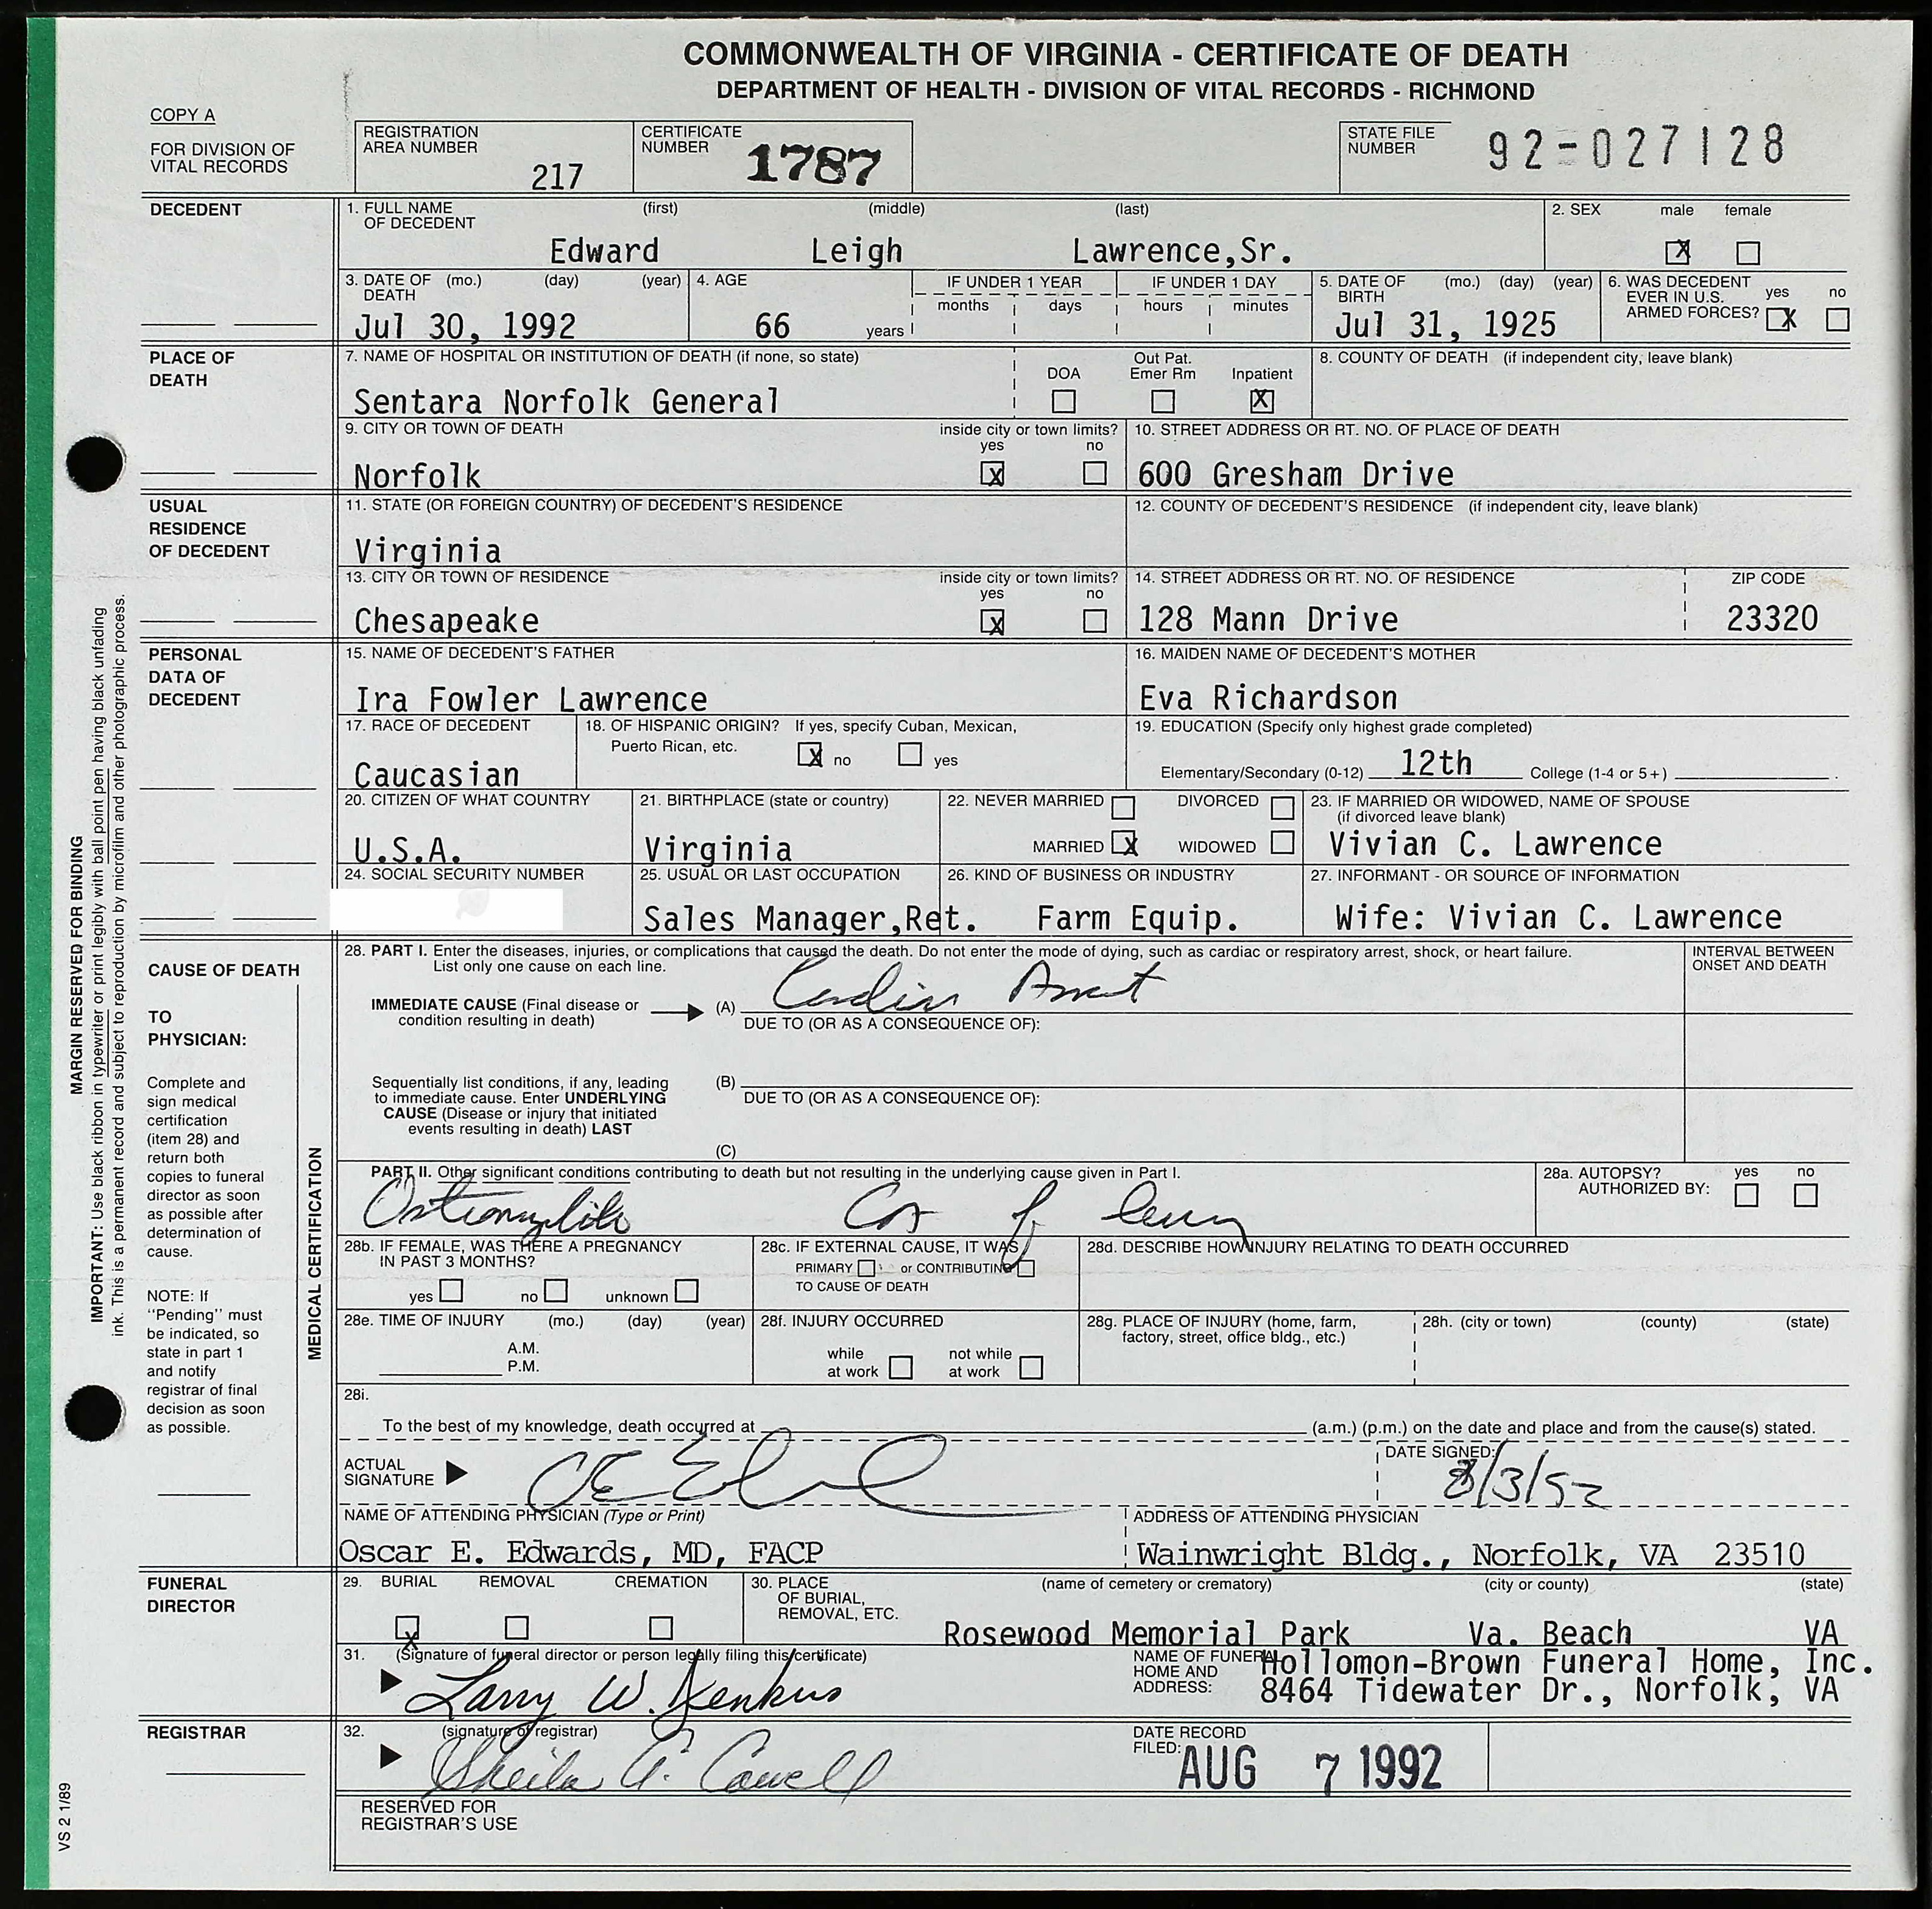 COMMONWEALTH OF VIRGINIA - CERTIFICATE OF DEATH
DEPARTMENT OF HEALTH - DIVISION OF VITAL RECORDS - RICHMOND
COPY A
FOR DIVISION OF
VITAL RECORDS
REGISTRATION
AREA NUMBER
217
CERTIFICATE
NUMBER
1787
STATE FILE
NUMBER
92-027128
DECEDENT
1. FULL NAME OF DECEDENT (first) (middle) (last)
Edward Leigh Lawrence,Sr.
2. SEX male female
X
3. DATE OF DEATH (mo.) (day) (year)
Jul 30, 1992
4. AGE
66 years
IF UNDER 1 YEAR
months days
IF UNDER 1 DAY
hours minutes
5. DATE OF BIRTH (mo.) (day) (year)
Jul 31, 1925
6. WAS DECEDENT
EVER IN U.S.
ARMED FORCES? yes no
X
PLACE OF
DEATH
7. NAME OF HOSPITAL OR INSTITUTION OF DEATH (if none, so state)
Sentara Norfolk General
DOA
Out Pat.
Emer Rm
Inpatient
X
8. COUNTY OF DEATH (if independent city, leave blank)
9. CITY OR TOWN OF DEATH
Norfolk
inside city or town limits?
yes no
X
10. STREET ADDRESS OR RT. NO. OF PLACE OF DEATH
600 Gresham Drive
USUAL
RESIDENCE
OF DECEDENT
11. STATE (OR FOREIGN COUNTRY) OF DECEDENT'S RESIDENCE
Virginia
12. COUNTY OF DECEDENT'S RESIDENCE (if independent city, leave blank)
13. CITY OR TOWN OF RESIDENCE
Chesapeake
inside city or town limits?
yes no
X
14. STREET ADDRESS OR RT. NO. OF RESIDENCE
128 Mann Drive
ZIP CODE
23320
PERSONAL
DATA OF
DECEDENT
15. NAME OF DECEDENT'S FATHER
Ira Fowler Lawrence
16. MAIDEN NAME OF DECEDENT'S MOTHER
Eva Richardson
17. RACE OF DECEDENT
Caucasian
18. OF HISPANIC ORIGIN? If yes, specify Cuban, Mexican,
Puerto Rican, etc. X no yes
19. EDUCATION (Specify only highest grade completed)
Elementary/Secondary (0-12) 12th College (1-4 or 5+)
20. CITIZEN OF WHAT COUNTRY
U.S.A.
21. BIRTHPLACE (state or country)
Virginia
22. NEVER MARRIED DIVORCED
MARRIED X WIDOWED
23. IF MARRIED OR WIDOWED, NAME OF SPOUSE
(if divorced leave blank)
Vivian C. Lawrence
24. SOCIAL SECURITY NUMBER
25. USUAL OR LAST OCCUPATION
Sales Manager,Ret.
26. KIND OF BUSINESS OR INDUSTRY
Farm Equip.
27. INFORMANT - OR SOURCE OF INFORMATION
Wife: Vivian C. Lawrence
CAUSE OF DEATH
TO
PHYSICIAN:
Complete and
sign medical
certification
(item 28) and
return both
copies to funeral
director as soon
as possible after
determination of
cause.
NOTE: If
"Pending" must
be indicated, so
state in part 1
and notify
registrar of final
decision as soon
as possible.
MEDICAL CERTIFICATION
28. PART I. Enter the diseases, injuries, or complications that caused the death. Do not enter the mode of dying, such as cardiac or respiratory arrest, shock, or heart failure.
List only one cause on each line.
INTERVAL BETWEEN
ONSET AND DEATH
IMMEDIATE CAUSE (Final disease or
condition resulting in death)
(A) Cardiac Arrest
DUE TO (OR AS A CONSEQUENCE OF):
Sequentially list conditions, if any, leading
to immediate cause. Enter UNDERLYING
CAUSE (Disease or injury that initiated
events resulting in death) LAST
(B)
DUE TO (OR AS A CONSEQUENCE OF):
(C)
PART II. Other significant conditions contributing to death but not resulting in the underlying cause given in Part I.
Osteomyelitis Ca of lung
28a. AUTOPSY? yes no
AUTHORIZED BY:
28b. IF FEMALE, WAS THERE A PREGNANCY
IN PAST 3 MONTHS?
yes no unknown
28c. IF EXTERNAL CAUSE, IT WAS
PRIMARY or CONTRIBUTING
TO CAUSE OF DEATH
28d. DESCRIBE HOW INJURY RELATING TO DEATH OCCURRED
28e. TIME OF INJURY (mo.) (day) (year)
A.M.
P.M.
28f. INJURY OCCURRED
while at work
not while at work
28g. PLACE OF INJURY (home, farm,
factory, street, office bldg., etc.)
28h. (city or town) (county) (state)
28i.
To the best of my knowledge, death occurred at (a.m.) (p.m.) on the date and place and from the cause(s) stated.
ACTUAL
SIGNATURE
DATE SIGNED:
8/3/92
NAME OF ATTENDING PHYSICIAN (Type or Print)
Oscar E. Edwards, MD, FACP
ADDRESS OF ATTENDING PHYSICIAN
Wainwright Bldg., Norfolk, VA 23510
FUNERAL
DIRECTOR
29. BURIAL REMOVAL CREMATION
X
30. PLACE
OF BURIAL,
REMOVAL, ETC.
(name of cemetery or crematory) (city or county) (state)
Rosewood Memorial Park Va. Beach VA
31. (Signature of funeral director or person legally filing this certificate)
Larry W. Jenkins
NAME OF FUNERAL
HOME AND
ADDRESS:
Hollomon-Brown Funeral Home, Inc.
8464 Tidewater Dr., Norfolk, VA
REGISTRAR
32. (signature of registrar)
Sheila A. Cowell
DATE RECORD
FILED:
AUG 7 1992
RESERVED FOR
REGISTRAR'S USE
MARGIN RESERVED FOR BINDING
IMPORTANT: Use black ribbon in typewriter or print legibly with ball point pen having black unfading
ink. This is a permanent record and subject to reproduction by microfilm and other photographic process.
VS 2 1/89